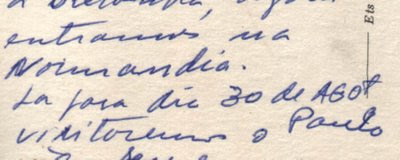 entramos na
Normandia.
Lá para dia 30 de AGOT
visitaremos o Paulo
Ets